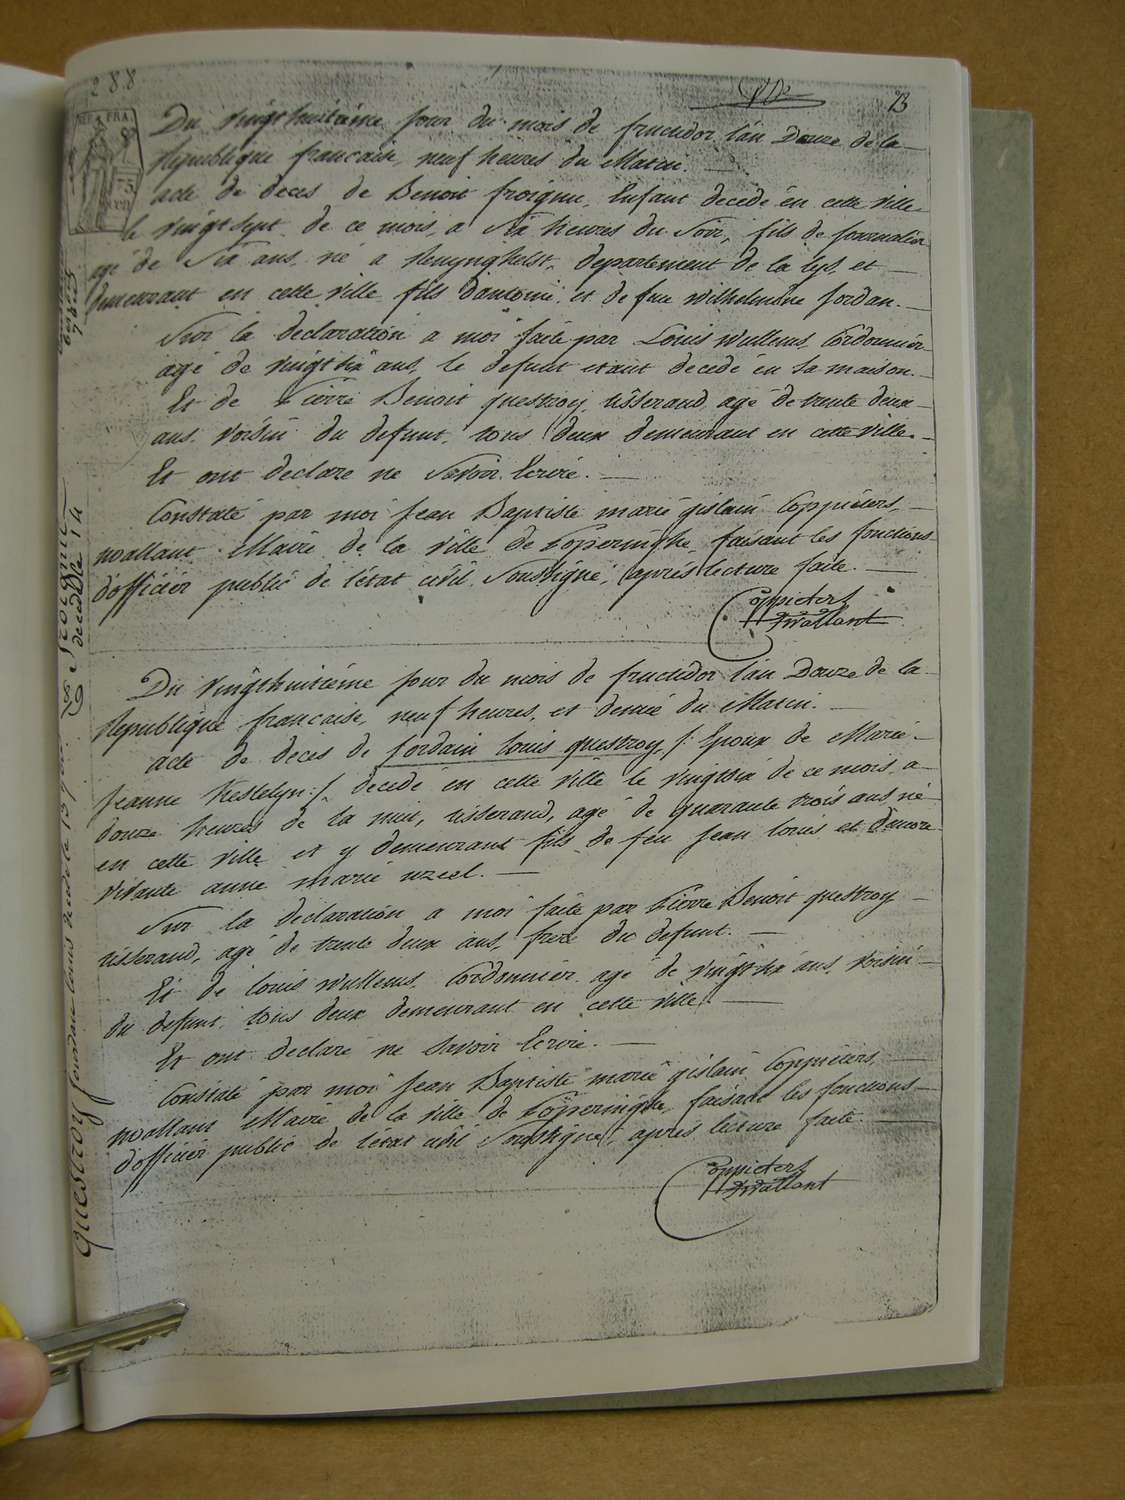 288
23
REP. FRA
75
Du vingthuitième jour du mois de fructidor l'an Douze de la
Republique francaise, neuf heures du Matin.
acte de deces de Benoit froigne, Enfant decedé en cette ville
le vingt sept de ce mois, a Six heures du Soir, fils de Journalier
agé de Six ans, né a Renynghelst, departement de la Lys, et
demeurant en cette ville fils d'antoine, et de feue Wilhelmine Jordan.
Sur la declaration a moi faite par Louis Wullems, Cordonnier
agé de vingt six ans, le defunt etant decedé en sa maison.
Et de Pierre Benoit questroy, tisserand, agé de trente deux
ans, voisin du defunt, tous deux demeurant en cette ville.
Et ont declare ne Savoir Ecrire.
Constaté par moi Jean Baptiste marie gislain Coppieters,
wallant Maire de la ville de Poperinghe, faisant les fonctions
d'officier public de l'état civil, Soussigné, après lecture faite.
Coppieters
Twallant
Du vingthuitième jour du mois de fructidor l'an Douze de la
Republique francaise, neuf heures, et demie du Matin.
acte de deces de Jordain Louis questroy, /: Epoux de Marie
Jeanne Kestelyn :/ decedé en cette ville le vingtsix de ce mois, a
douze heures de la nuit, tisserand, agé de quarante trois ans né
en cette ville et y demeurant fils de feu Jean louis, et d'encore
vivante anne marie uzeel.
Sur la declaration a moi faite par Pierre Benoit questroy
tisserand, agé de trente deux ans, frere du defunt.
Et de louis Wullems, Cordonnier, agé de vingt six ans, voisin
du defunt, tous deux demeurant en cette ville.
Et ont declaré ne Savoir Ecrire.
Constaté par moi Jean Baptiste marie gislain Coppieters,
wallant Maire de la ville de Poperinghe, faisant les fonctions
d'officier public de l'état civil Soussigné, après lecture faite.
Coppieters
Twallant
Questroy Jourdain louis